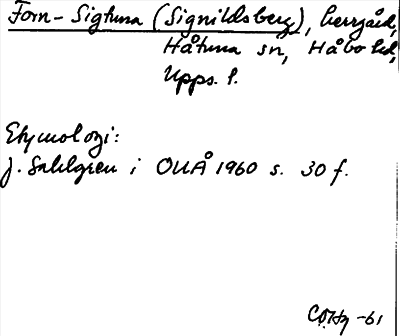 Forn-Sigtuna (Signildsberg), herrgård,
Håtuna sn, Håbo hd,
Upps. l.
Etymologi:
J. Sahlgren i OUÅ 1960 s. 30 f.
-61